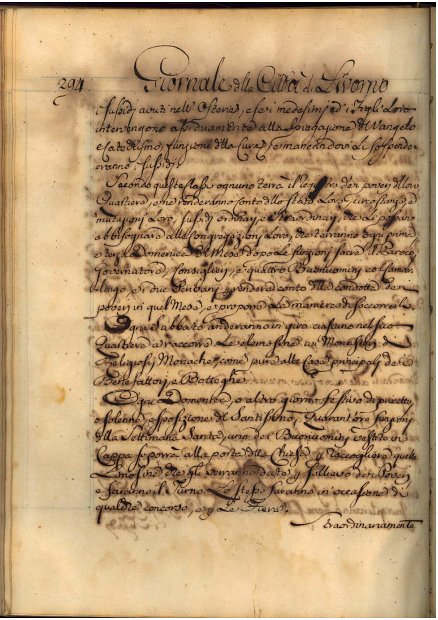 294. Giornale della Città di Livorno
i sussidj avuti nell'Osteria, e se i medesimi ed i Figli Loro
intervengono assiduamente alla spiegazione del Vangelo
e Catechismo, funzione della Cura, e mancandovi Li sospende
eranno i sussidj.
Secondo queste classi ognuno terrà il Registro dei poveri del loro
Quartiere, e ne renderanno conto dello stato Loro, circostanze, e
mutazioni Loro, sussidj ordinarj e straordinarj, che Li possano
abbisognare alle Congregazioni Loro, che terranno ogni prima
e terza Domenica del Mese dopo le funzioni sacre, il Paroco,
Governatore, Consiglieri, e quattro Buonuomini, col Camar-
lengo, e i due renderà conto della condotta dei
poveri in quel Mese, e proporrà La maniera di soccorrerli.
Ogni Sabbato anderanno in giro ciascuno nel suo
Quartiere a raccorre Le elemosine ai Monasteri di
Religiosi, Monache, come pure alle Case principali, dei
Benefattori, e Botteghe.
Ogni Domenica, o altro giorno festivo di precetto,
o solenne esposizione del Santissimo, Quarantore funzioni
della Settimana Santa, uno dei Buonuomini vestito in
Cappa si porrà alla porta della Chiesa per raccogliere quelle
Limosine che gli verranno date per sollievo dei Poveri,
e faranno il Turno. L'istesso faranno in occasione di
qualche concorso, e per Le Fiere.
Straordinariamente